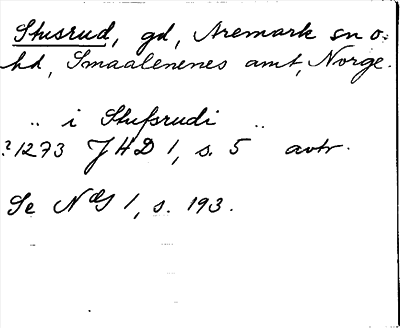 Stusrud, gd, Aremark sn o.
hd, Smaalenenes amt, Norge.
„ i Stufsrudi „
?1273 JHD 1, s. 5 avtr.
Se NG 1, s. 193.